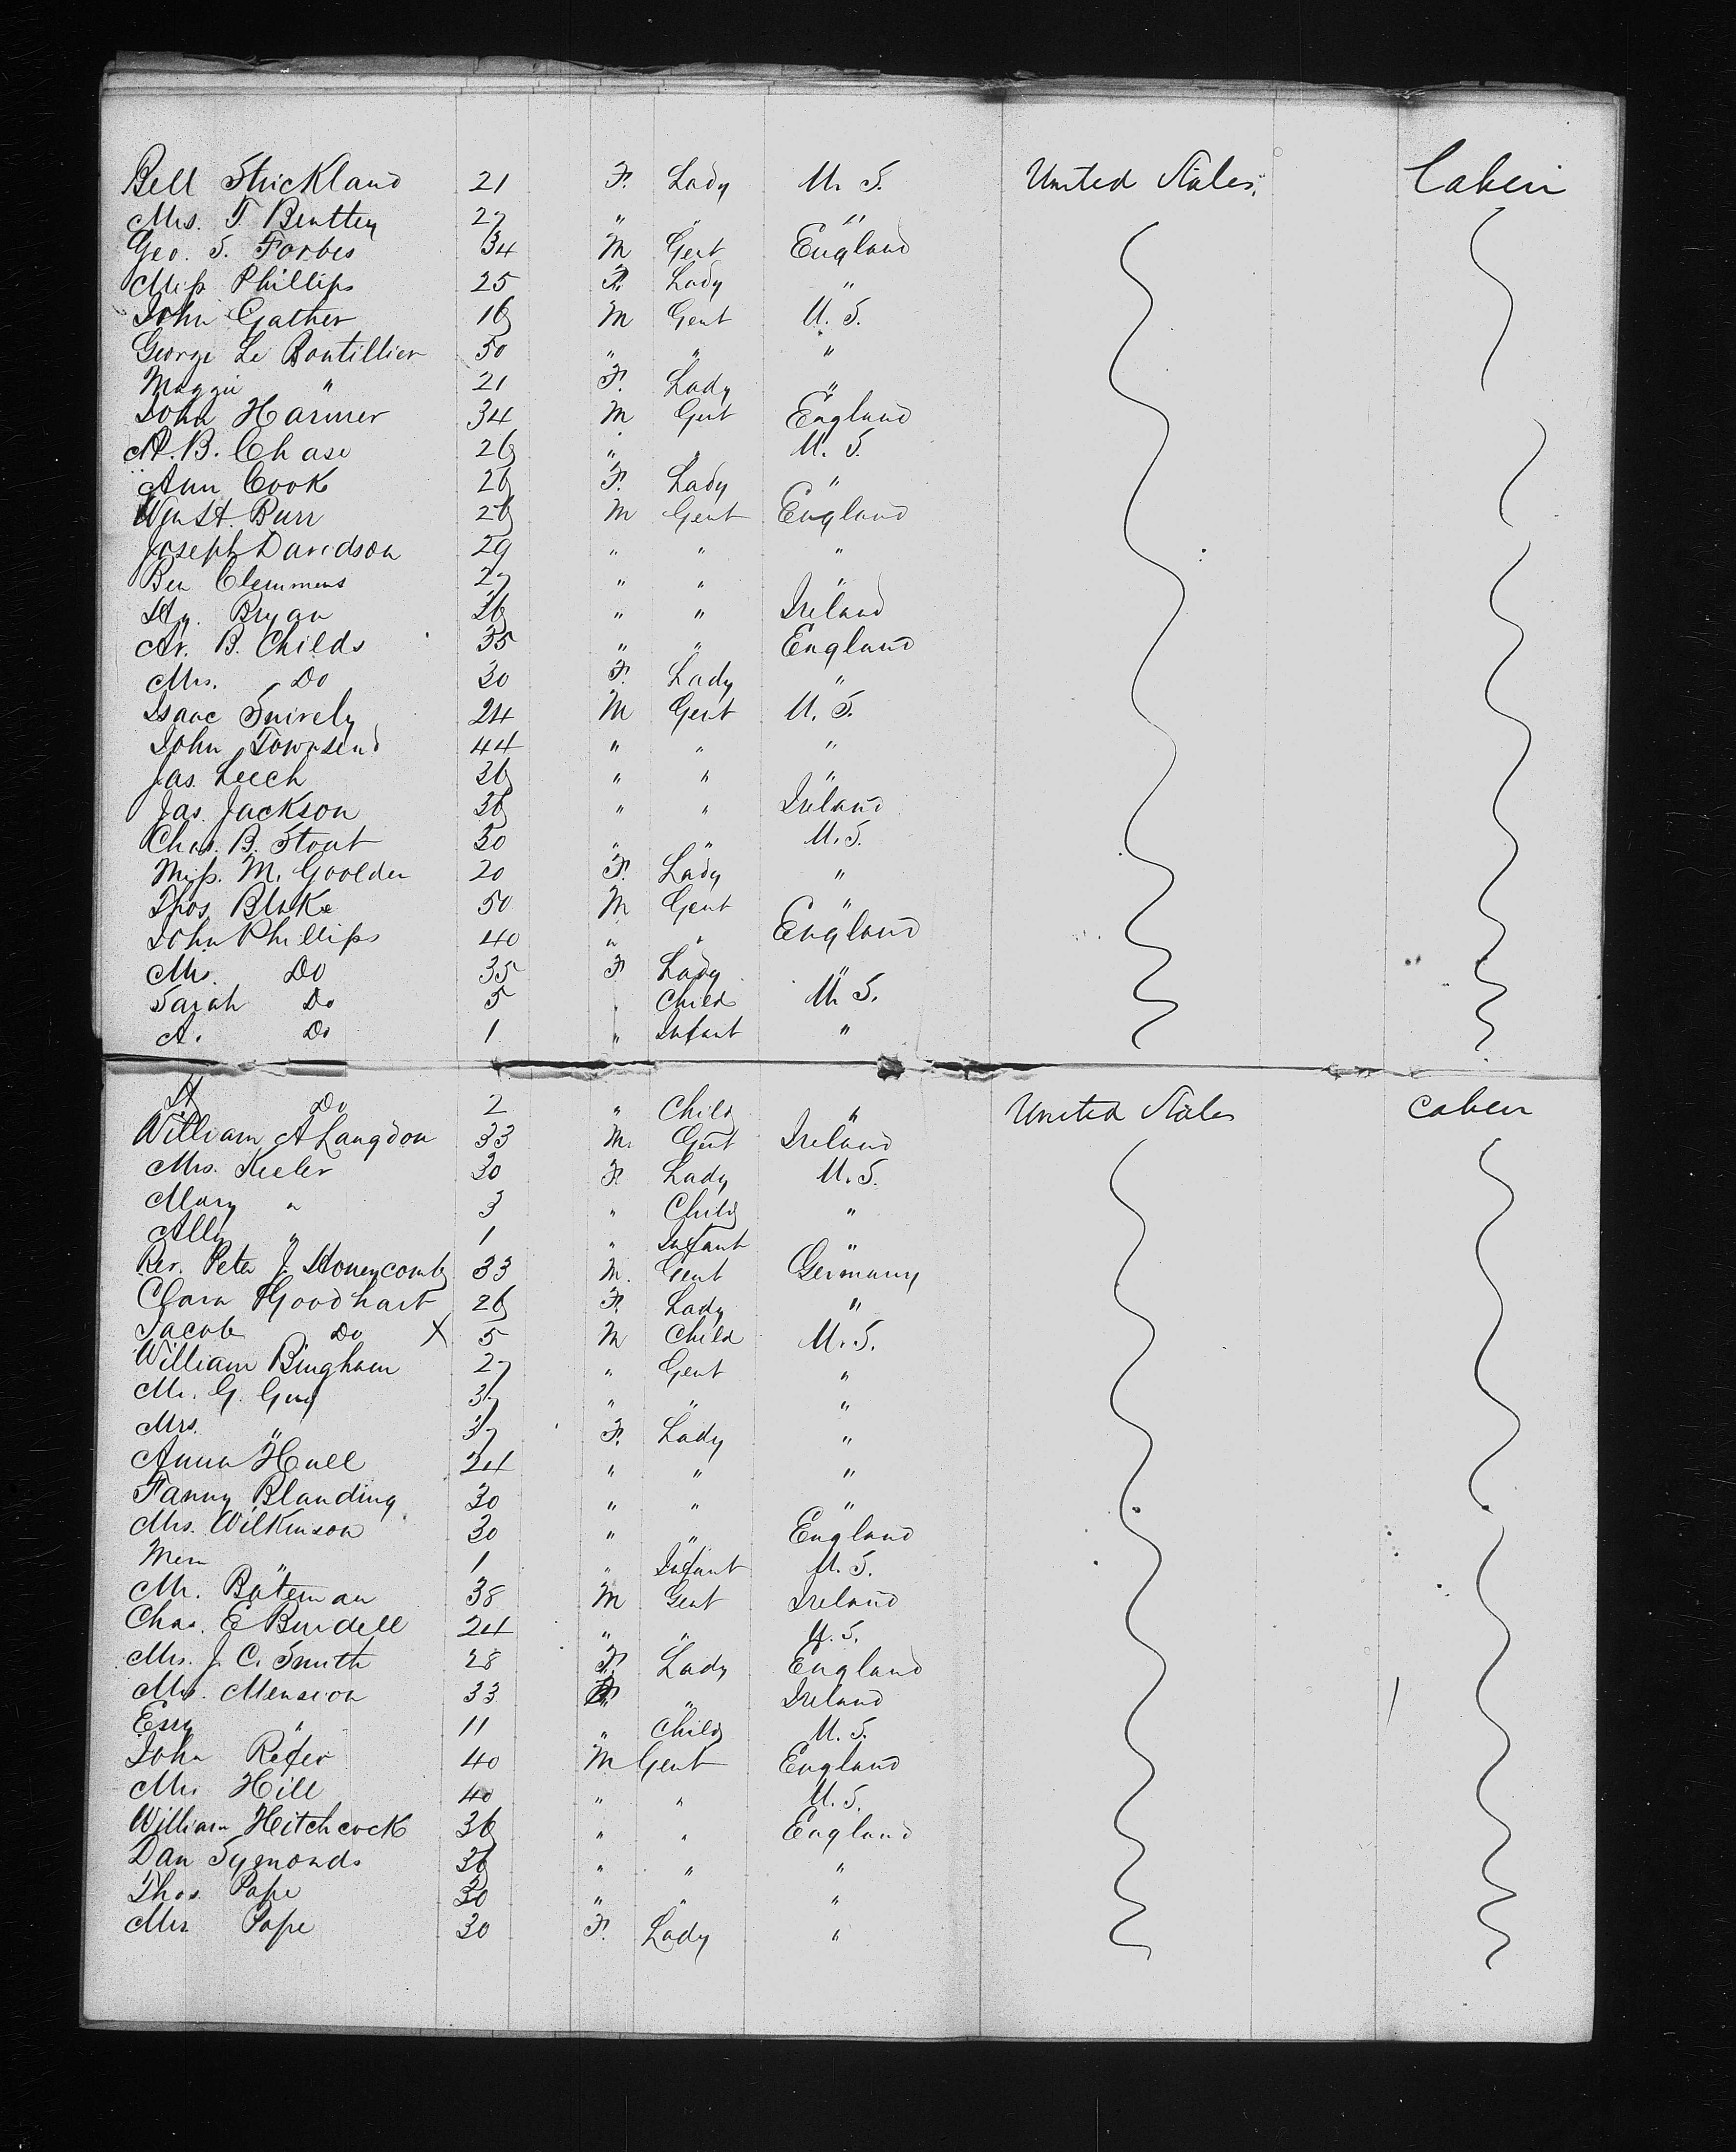 Bell Strickland 21 F. Lady U. S. United States. Cabin
Mrs. T. Bentley 27 " " "
Geo. S. Forbes 34 M Gent England
Miss Phillips 25 F. Lady "
John Gather 16 M Gent U. S.
George Le Boutillier 50 " " "
Maggie " 21 F. Lady "
John Harmer 34 M Gent England
A. B. Chase 26 " " U. S.
Ann Cook 26 F. Lady "
Burr 26 M Gent England
Joseph Davidson 29 " " "
Ben Clemmens 27 " " "
Hy. Bryan 36 " " Ireland
Ar. B. Childs 35 " " England
Mrs. Do 30 F. Lady "
Isaac Snively 24 M Gent U. S.
John Townsend 44 " " "
Jas. Leech 36 " " "
Jas. Jackson 36 " " Ireland
Chas. B. Stout 30 " " U. S.
Miss. M. Goolden 20 F. Lady "
Thos. Blake 50 M Gent "
John Phillips 40 " " England
Mrs. Do 35 F Lady "
Sarah Do 5 " Child U. S.
A. Do 1 " Infant "
H Do 2 " Child " United States Cabin
William A Langdon 33 M. Gent Ireland
Mrs. Keeler 30 F. Lady U. S.
Mary " 3 " Child "
Ally " 1 " Infant "
Rev. Peter J. Honeycomb 33 M. Gent Germany
Clara Goodhart 26 F. Lady "
Jacob Do X 5 M Child U. S.
William Bingham 27 " Gent "
Mr. G. Guy 37 " " "
Mrs. " 37 F. Lady "
Anna Hull 24 " " "
Fanny Blanding 30 " " "
Mrs. Wilkinson 30 " " England
" 1 " Infant U. S.
Mr. Bateman 38 M Gent Ireland
Chas. E Burdell 24 " " U. S.
Mrs. J. C. Smith 28 F. Lady England
Mrs. Mension 33 F. " Ireland
Essy " 11 " Child U. S.
John 40 M Gent England
Mr Hill 40 " " U. S.
William Hitchcock 36 " " England
Dan Symonds 36 " " "
Thos. Pope 30 " " "
Mrs Pope 30 F. Lady "